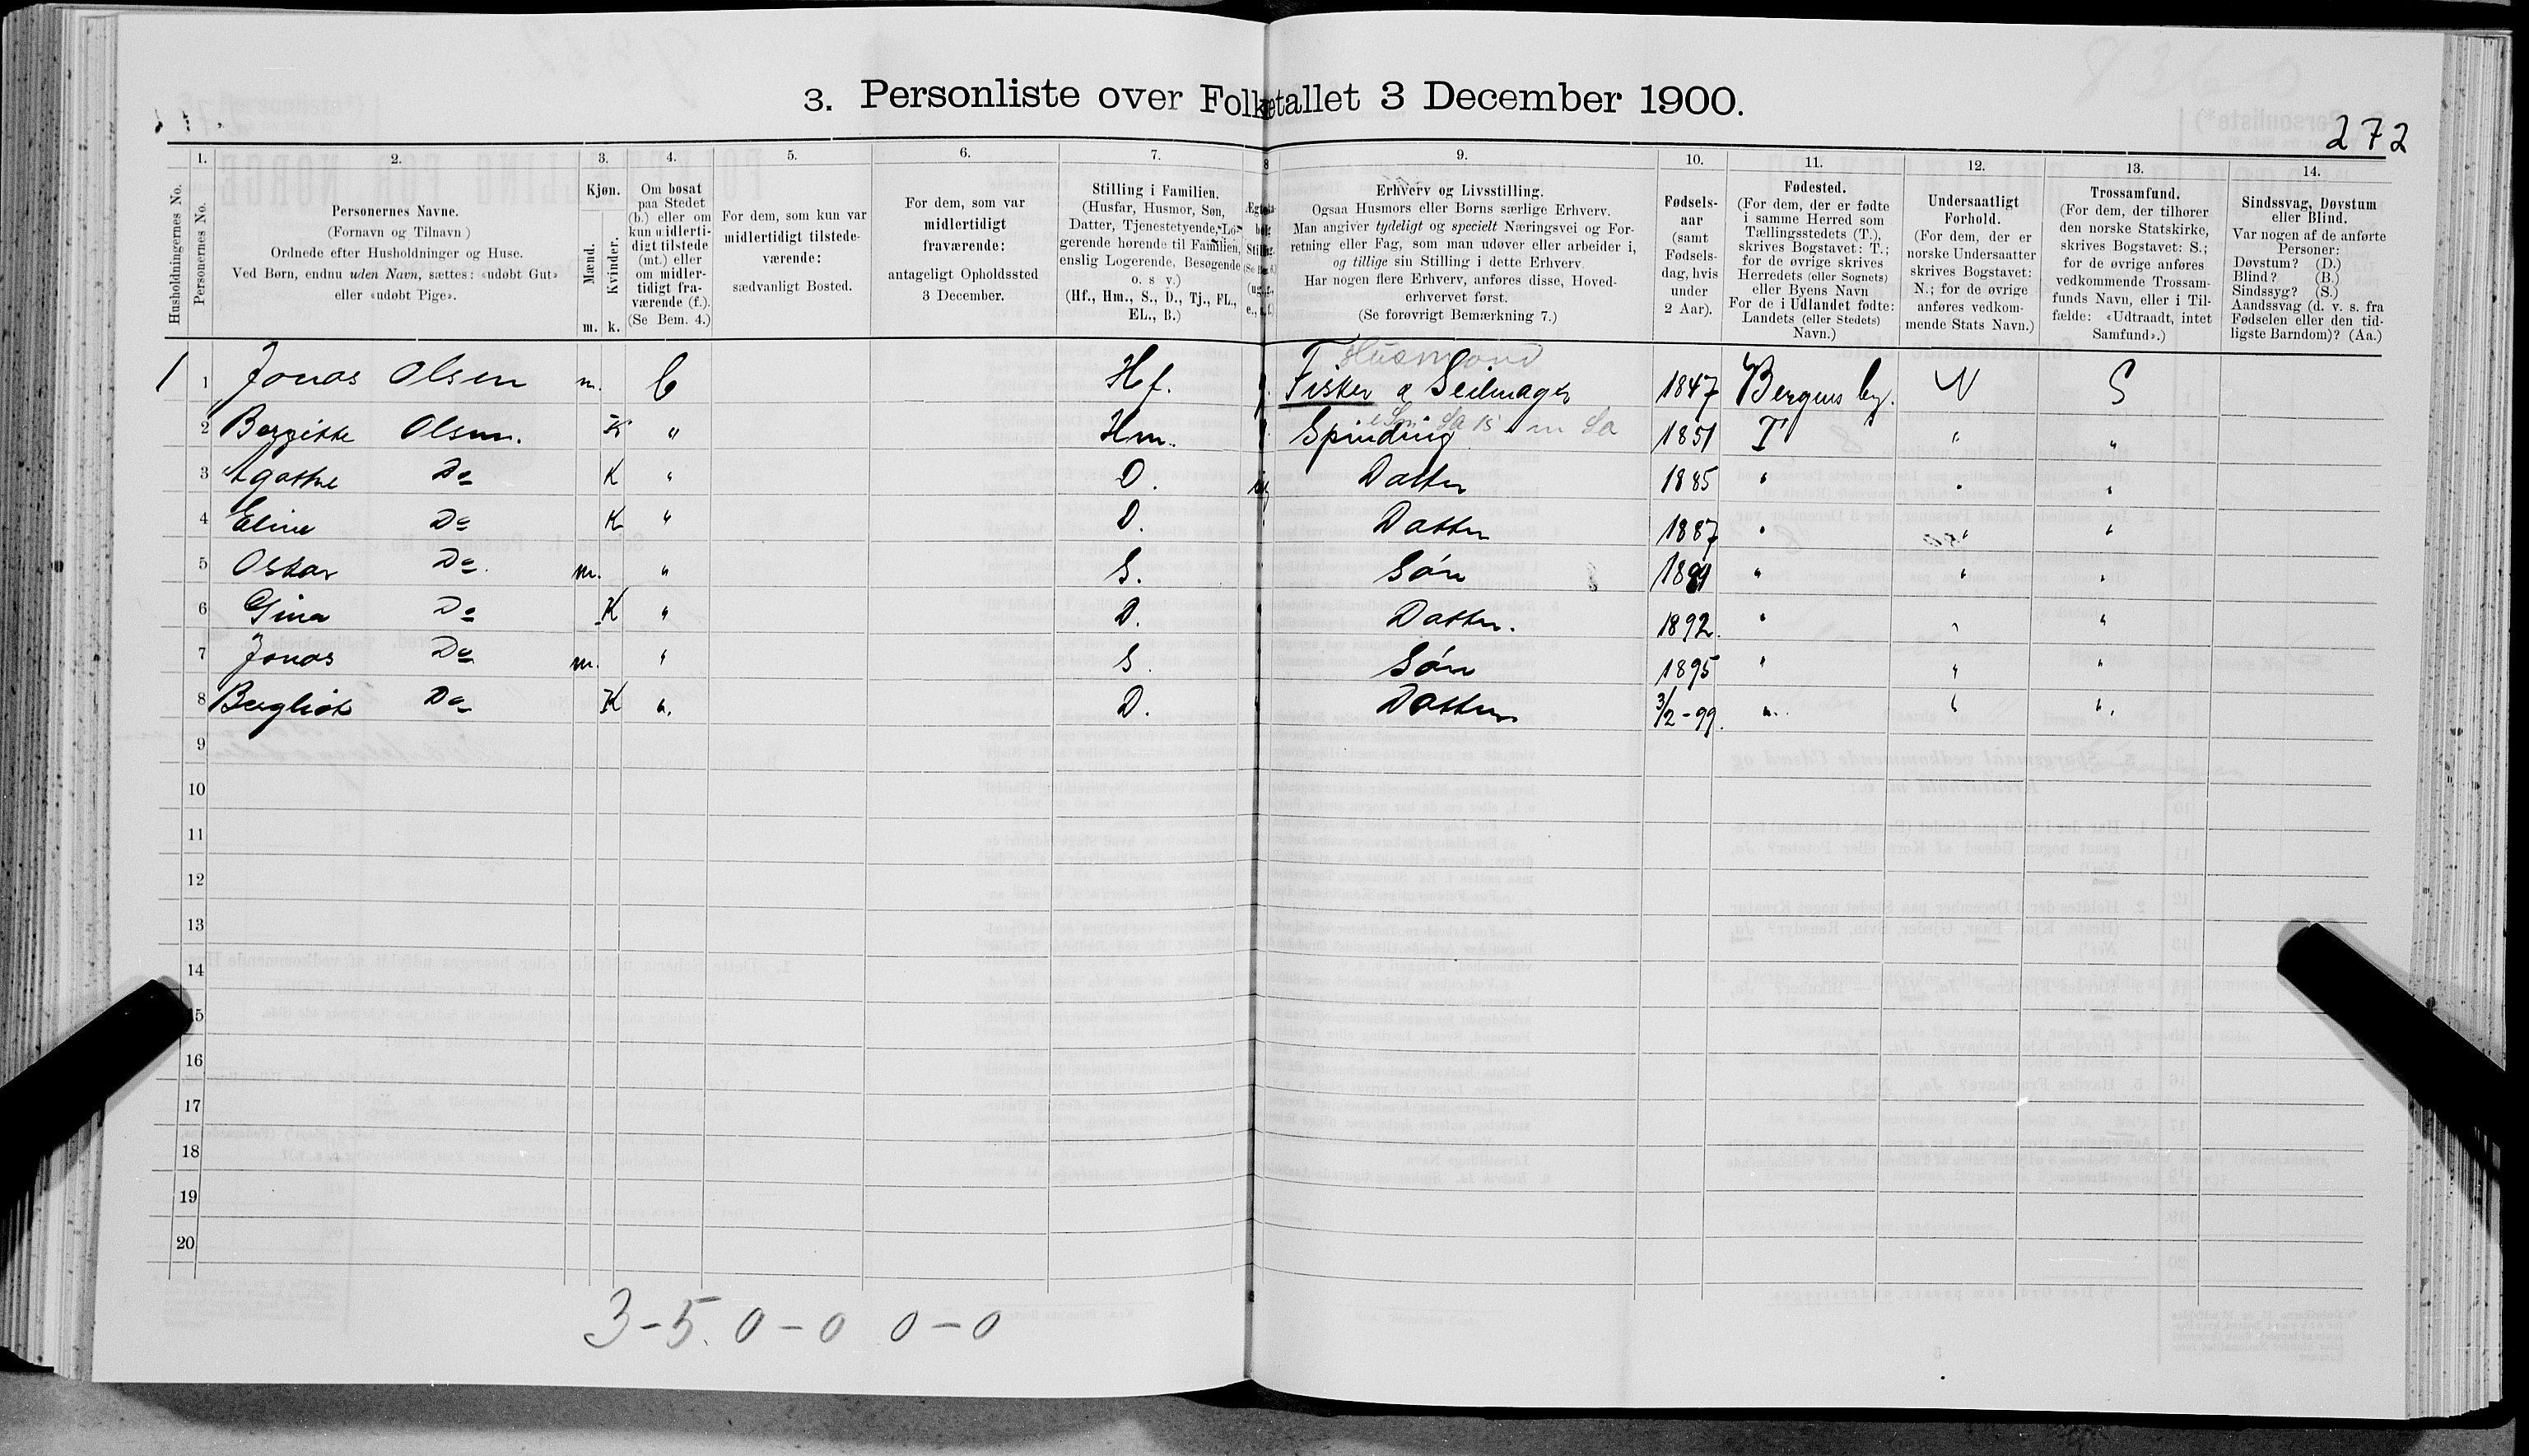 3. Personliste over Folketallet 3 December 1900.
272
Husholdningernes No.
1.
Personernes No.
2.
Personernes Navne.
(Fornavn og Tilnavn)
Ordnede efter Husholdninger og Huse.
Ved Børn, endnu uden Navn, sættes: «udøbt Gut»
eller «udøbt Pige».
3.
Kjøn.
Mænd.
Kvinder.
m. k.
4.
Om bosat
paa Stedet
(b.) eller om
kun midlerti-
digt tilstede
(mt.) eller
om midler-
tidigt fra-
værende (f.).
(Se Bem. 4.)
5.
For dem, som kun var
midlertidigt tilstede-
værende:
sædvanligt Bosted.
6.
For dem, som var
midlertidigt
fraværende:
antageligt Opholdssted
3 December.
7.
Stilling i Familien.
(Husfar, Husmor, Søn,
Datter, Tjenestetyende, Lo-
gerende hørende til Familien,
enslig Logerende, Besøgende
o. s. v.)
(Hf., Hm., S., D., Tj., FL.,
EL., B.)
8
9.
Erhverv og Livsstilling.
Ogsaa Husmors eller Børns særlige Erhverv.
Man angiver tydeligt og specielt Næringsvei og For-
retning eller Fag, som man udøver eller arbeider i,
og tillige sin Stilling i dette Erhverv.
Har nogen flere Erhverv, anføres disse, Hoved-
erhvervet først.
(Se forøvrigt Bemærkning 7.)
10.
Fødsels-
aar
(samt
Fødsels-
dag, hvis
under
2 Aar).
11.
Fødested.
(For dem, der er fødte
i samme Herred som
Tællingsstedets (T.),
skrives Bogstavet: T.;
for de øvrige skrives
Herredets (eller Sognets)
eller Byens Navn
For de i Udlandet fødte:
Landets (eller Stedets)
Navn.)
12.
Undersaatligt
Forhold.
(For dem, der er
norske Undersaatter
skrives Bogstavet:
N.; for de øvrige
anføres vedkom-
mende Stats Navn.)
13.
Trossamfund.
(For dem, der tilhører
den norske Statskirke,
skrives Bogstavet: S.;
for de øvrige anføres
vedkommende Trossam-
funds Navn, eller i Til-
fælde: «Udtraadt, intet
Samfund».)
14.
Sindssvag, Døvstum
eller Blind.
Var nogen af de anførte
Personer:
Døvstum? (D.)
Blind? (B.)
Sindssyg? (S.)
Aandssvag (d. v. s. fra
Fødselen eller den tid-
ligste Barndom)? (Aa.)
Husmand
1 1 Jonas Olsen m. b Hf. Fisker & Seilmager 1847 Bergens by. N S
2 Bergitte Olsen. K " Hm. Spinding 1851 T " "
3 Agathe Do K " D. Datter 1885 " " "
4 Eline Do K " D. Datter 1887 " " "
5 Oskar Do. m. " S. Søn " " "
6 Gina Do K " D. Datter. 1892. " " "
7 Jonas Do m. " S. Søn 1895 " " "
8 Bergliot Do K " D. Datter 3/2-99. " " "
9
10
11
12
13
14
15
16
17
18
19
20
3-5. 0-0 0-0